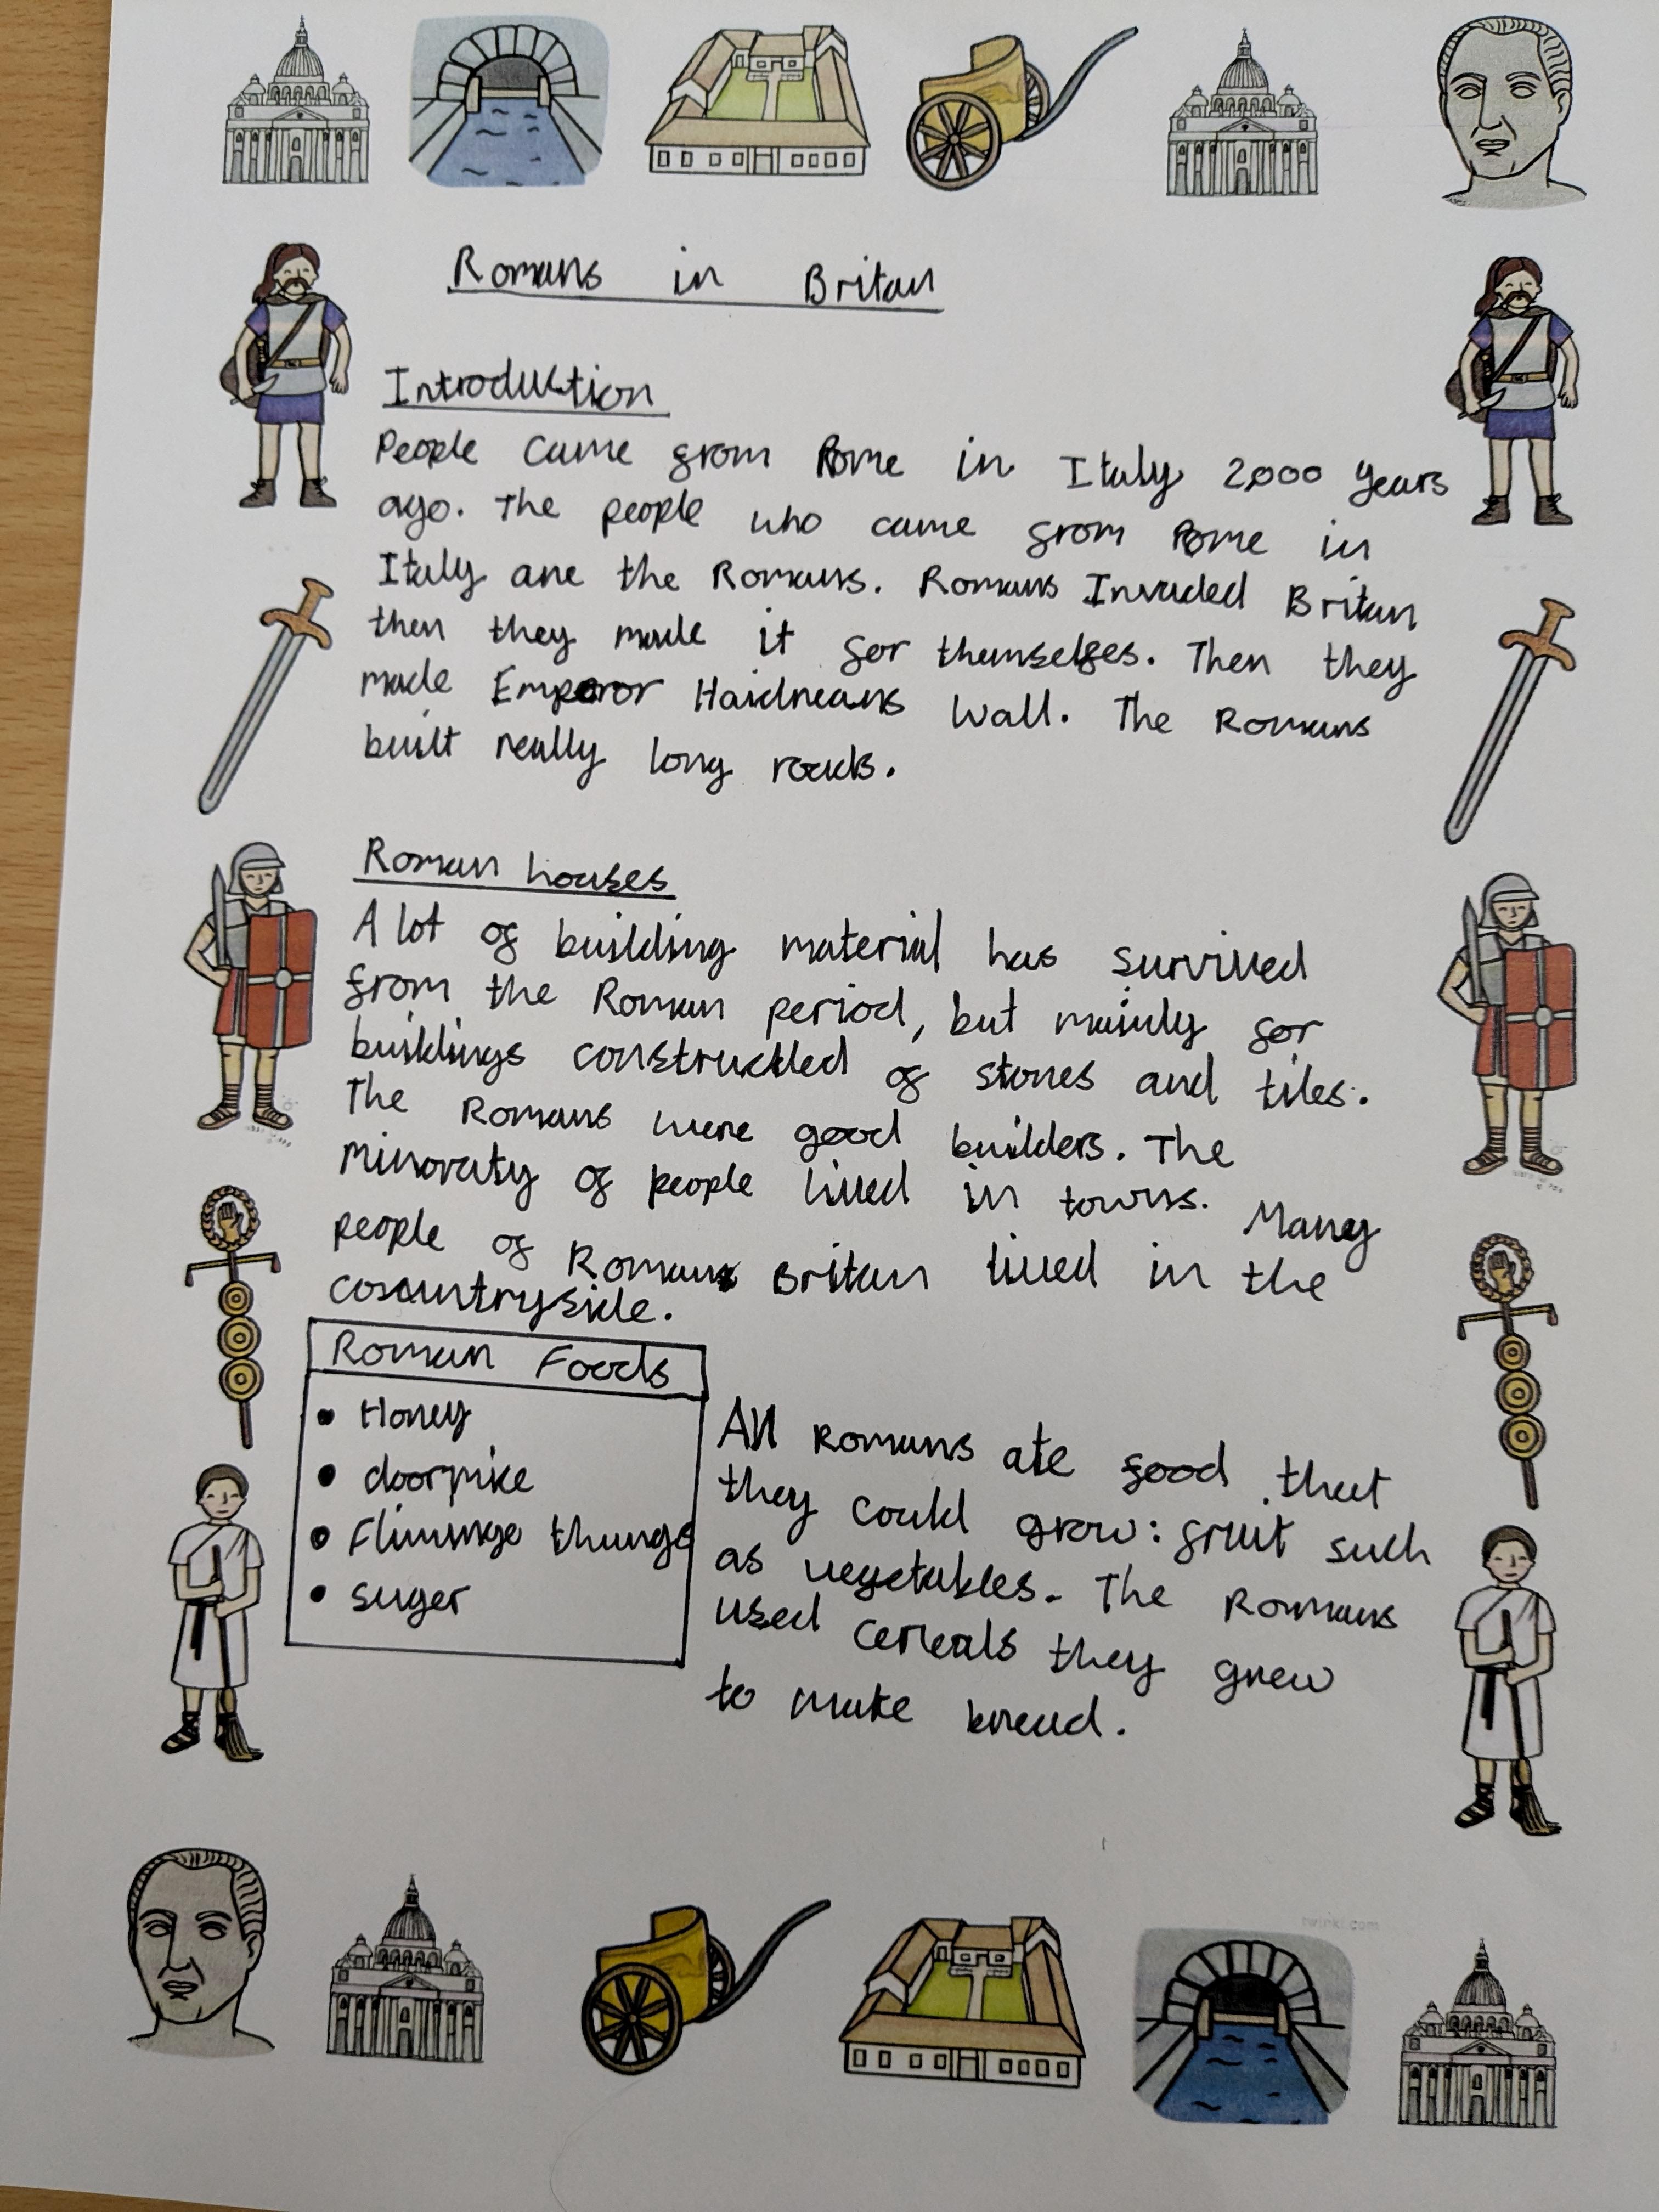 Romans in Britan
Introduction
People came from Rome in Italy 2,000 years
ago. The people who came from Rome in
Italy are the Romans. Romans Invaded Britan
then they made it for themselfes. Then they
made Emperor Haidreans Wall. The Romans
built really long roads.
Roman houses
A lot of building material has survived
from the Roman period, but mainly for
buildings constructed of stones and tiles.
The Romans were good builders. The
minoraty of people lived in towns. Many
people of Roman Britan lived in the
countryside.
Roman Foods
• Honey
• doormike
• Flimingo thungs
• suger
All Romans ate food that
they could grow: fruit such
as vegetables. The Romans
used cereals they grew
to make bread.
twinkl.com